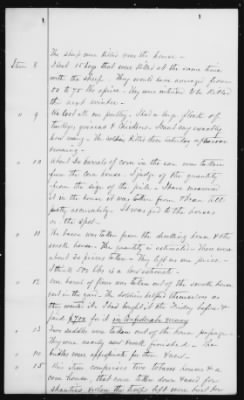 1
The sheep were killed near the house —
Item 8 I lost 15 hogs that were killed at the same time
with the sheep. They would have averaged from
50 to 75 lbs apiece. They were intended to be killed
the next winter —
" 9 We lost all our poultry. I had a large flock of
turkeys, geese & chickens. I cant say exactly
how many. The soldiers killed them saturday afternoon
evening —
" 10 About 20 barrels of corn in the ear were taken
from the corn house. I judge of the quantity
from the size of the pile. I have measured
it in the house it was taken from & can tell
pretty accurately. It was fed to the horses
on the spot —
" 11 The bacon was taken from the dwelling house & the
smoke house. The quantity is estimated. There were
about 20 pieces taken — They left us one piece —
I think 500 lbs is a low estimate —
" 12 One barrel of flour was taken out of the smoke house
out in the yard. The soldiers helped themselves as
they wanted it. I had bought it the Friday before &
paid $700 for it in Confederate money
" 13 Two saddles were taken out of the house passage —
They were nearly new & well finished — Two
" 14 bridles were appropriated
" 15 This item comprises two tobacco houses & a
corn house, that were taken down & used for